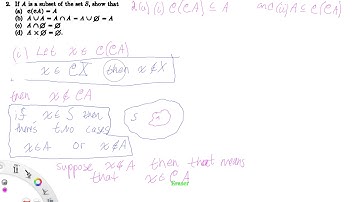 2. If A is a subset of the set S, show that
(a) c(cA) = A
(b) A ∪ A = A ∩ A = A ∪ ∅ = A
(c) A ∩ ∅ = ∅
(d) A × ∅ = ∅.
2(a) (i) C(CA) ⊆ A and (ii) A ⊆ C(CA)
(i) Let x ∈ C(CA)
x ∈ CX then x ∉ X
then x ∉ CA
if x ∈ S then
there's two cases
x ∈ A or x ∉ A
S
A
suppose x ∉ A then that means
that x ∈ CA